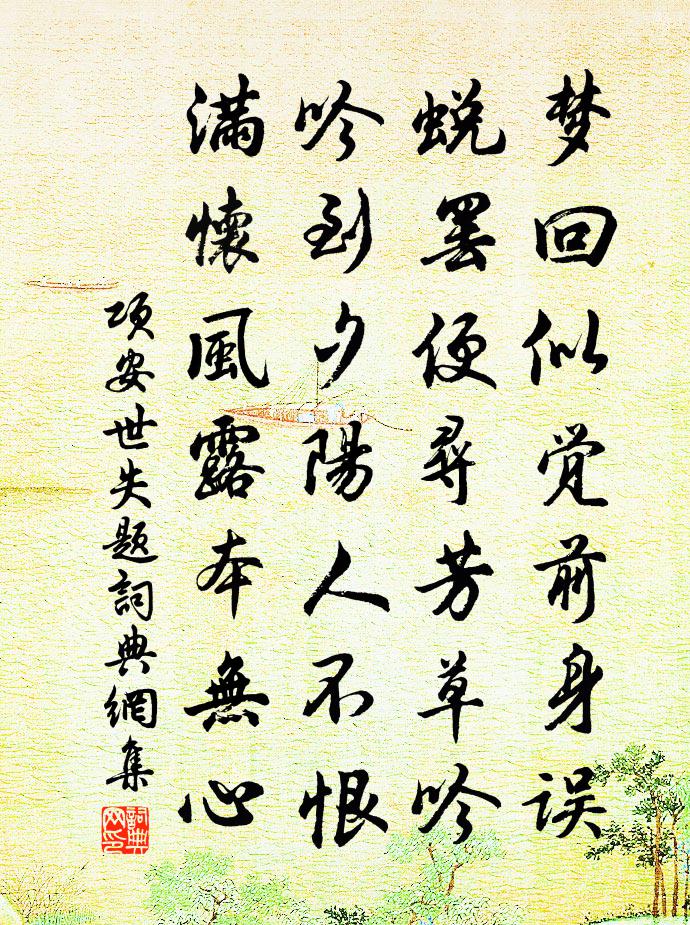 梦回似觉前身误
蜕罢便尋芳草吟
吟到夕陽人不恨
滿懷風露本無心
项安世失题詞典網集
詞典网印